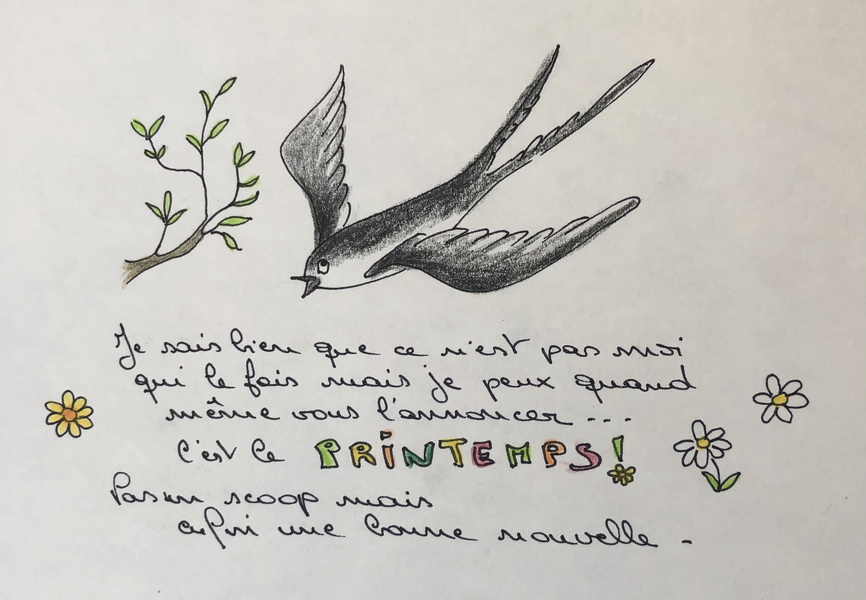 Je sais bien que ce n'est pas moi
qui le fais mais je peux quand
même vous l'annoncer ...
c'est le PRINTEMPS!
Pas un scoop mais
une bonne nouvelle -